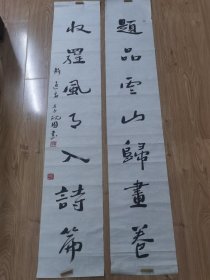 題品雲山歸畫卷
收羅風月入詩篇